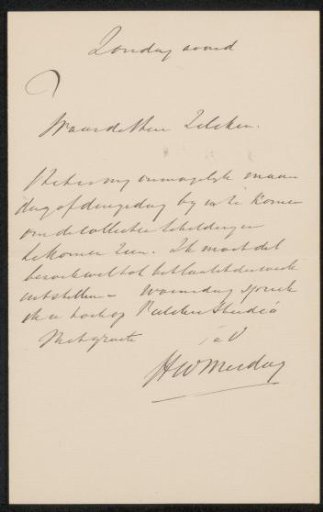 Zondag avond
Waarde Heer Zilcken.
Het is my onmogelyk maan
dag of dinsdag by u te komen
om de collectie schilderyen
te komen zien. Ik moet dit
bezoek wel tot het laatst der week
uitstellen - Woensdag spreek
ik u toch op Pulchri Studio
Met groete
t a V
HW Mesdag